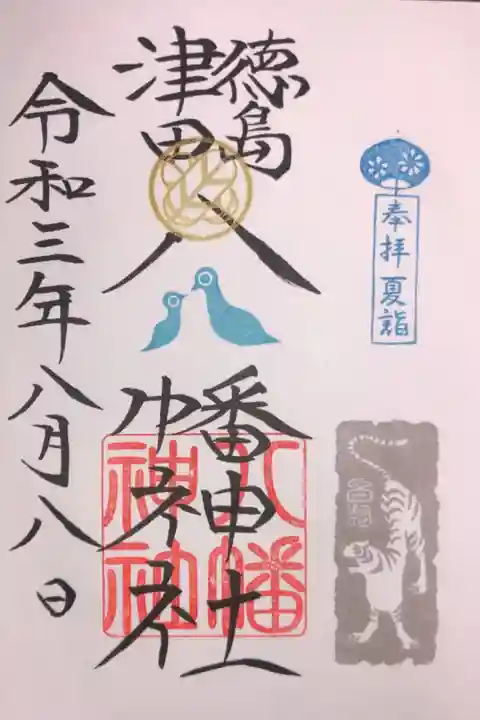 奉拝 夏詣
徳島
津田
八
幡神社
八幡
神社
白虎
令和三年八月八日